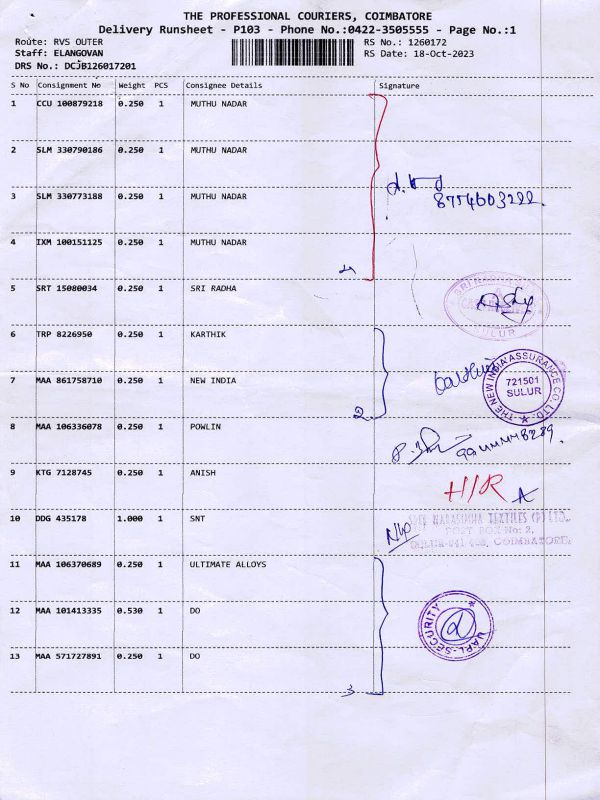 THE PROFESSIONAL COURIERS, COIMBATORE
Delivery Runsheet - P103 - Phone No.:0422-3505555 - Page No.:1
Route: RVS OUTER
RS No.: 1260172
Staff: ELANGOVAN
RS Date: 18-Oct-2023
DRS No.: DCJB126017201
S No Consignment No Weight PCS Consignee Details Signature
1 CCU 100879218 0.250 1 MUTHU NADAR
2 SLM 330790186 0.250 1 MUTHU NADAR
3 SLM 330773188 0.250 1 MUTHU NADAR
8754603222.
4 IXM 100151125 0.250 1 MUTHU NADAR
4
5 SRT 15080034 0.250 1 SRI RADHA
SULUR
6 TRP 8226950 0.250 1 KARTHIK
7 MAA 861758710 0.250 1 NEW INDIA
2
THE NEW INDIA ASSURANCE CO. LTD.
721501
SULUR
8 MAA 106336078 0.250 1 POWLIN
9 KTG 7128745 0.250 1 ANISH
H/R A
10 DDG 435178 1.000 1 SNT
NARASIMHA TEXTILES (P) LTD.,
POST BOX No: 2,
COIMBATORE
11 MAA 106370689 0.250 1 ULTIMATE ALLOYS
12 MAA 101413335 0.530 1 DO
UAPL-SECURITY
13 MAA 571727891 0.250 1 DO
3